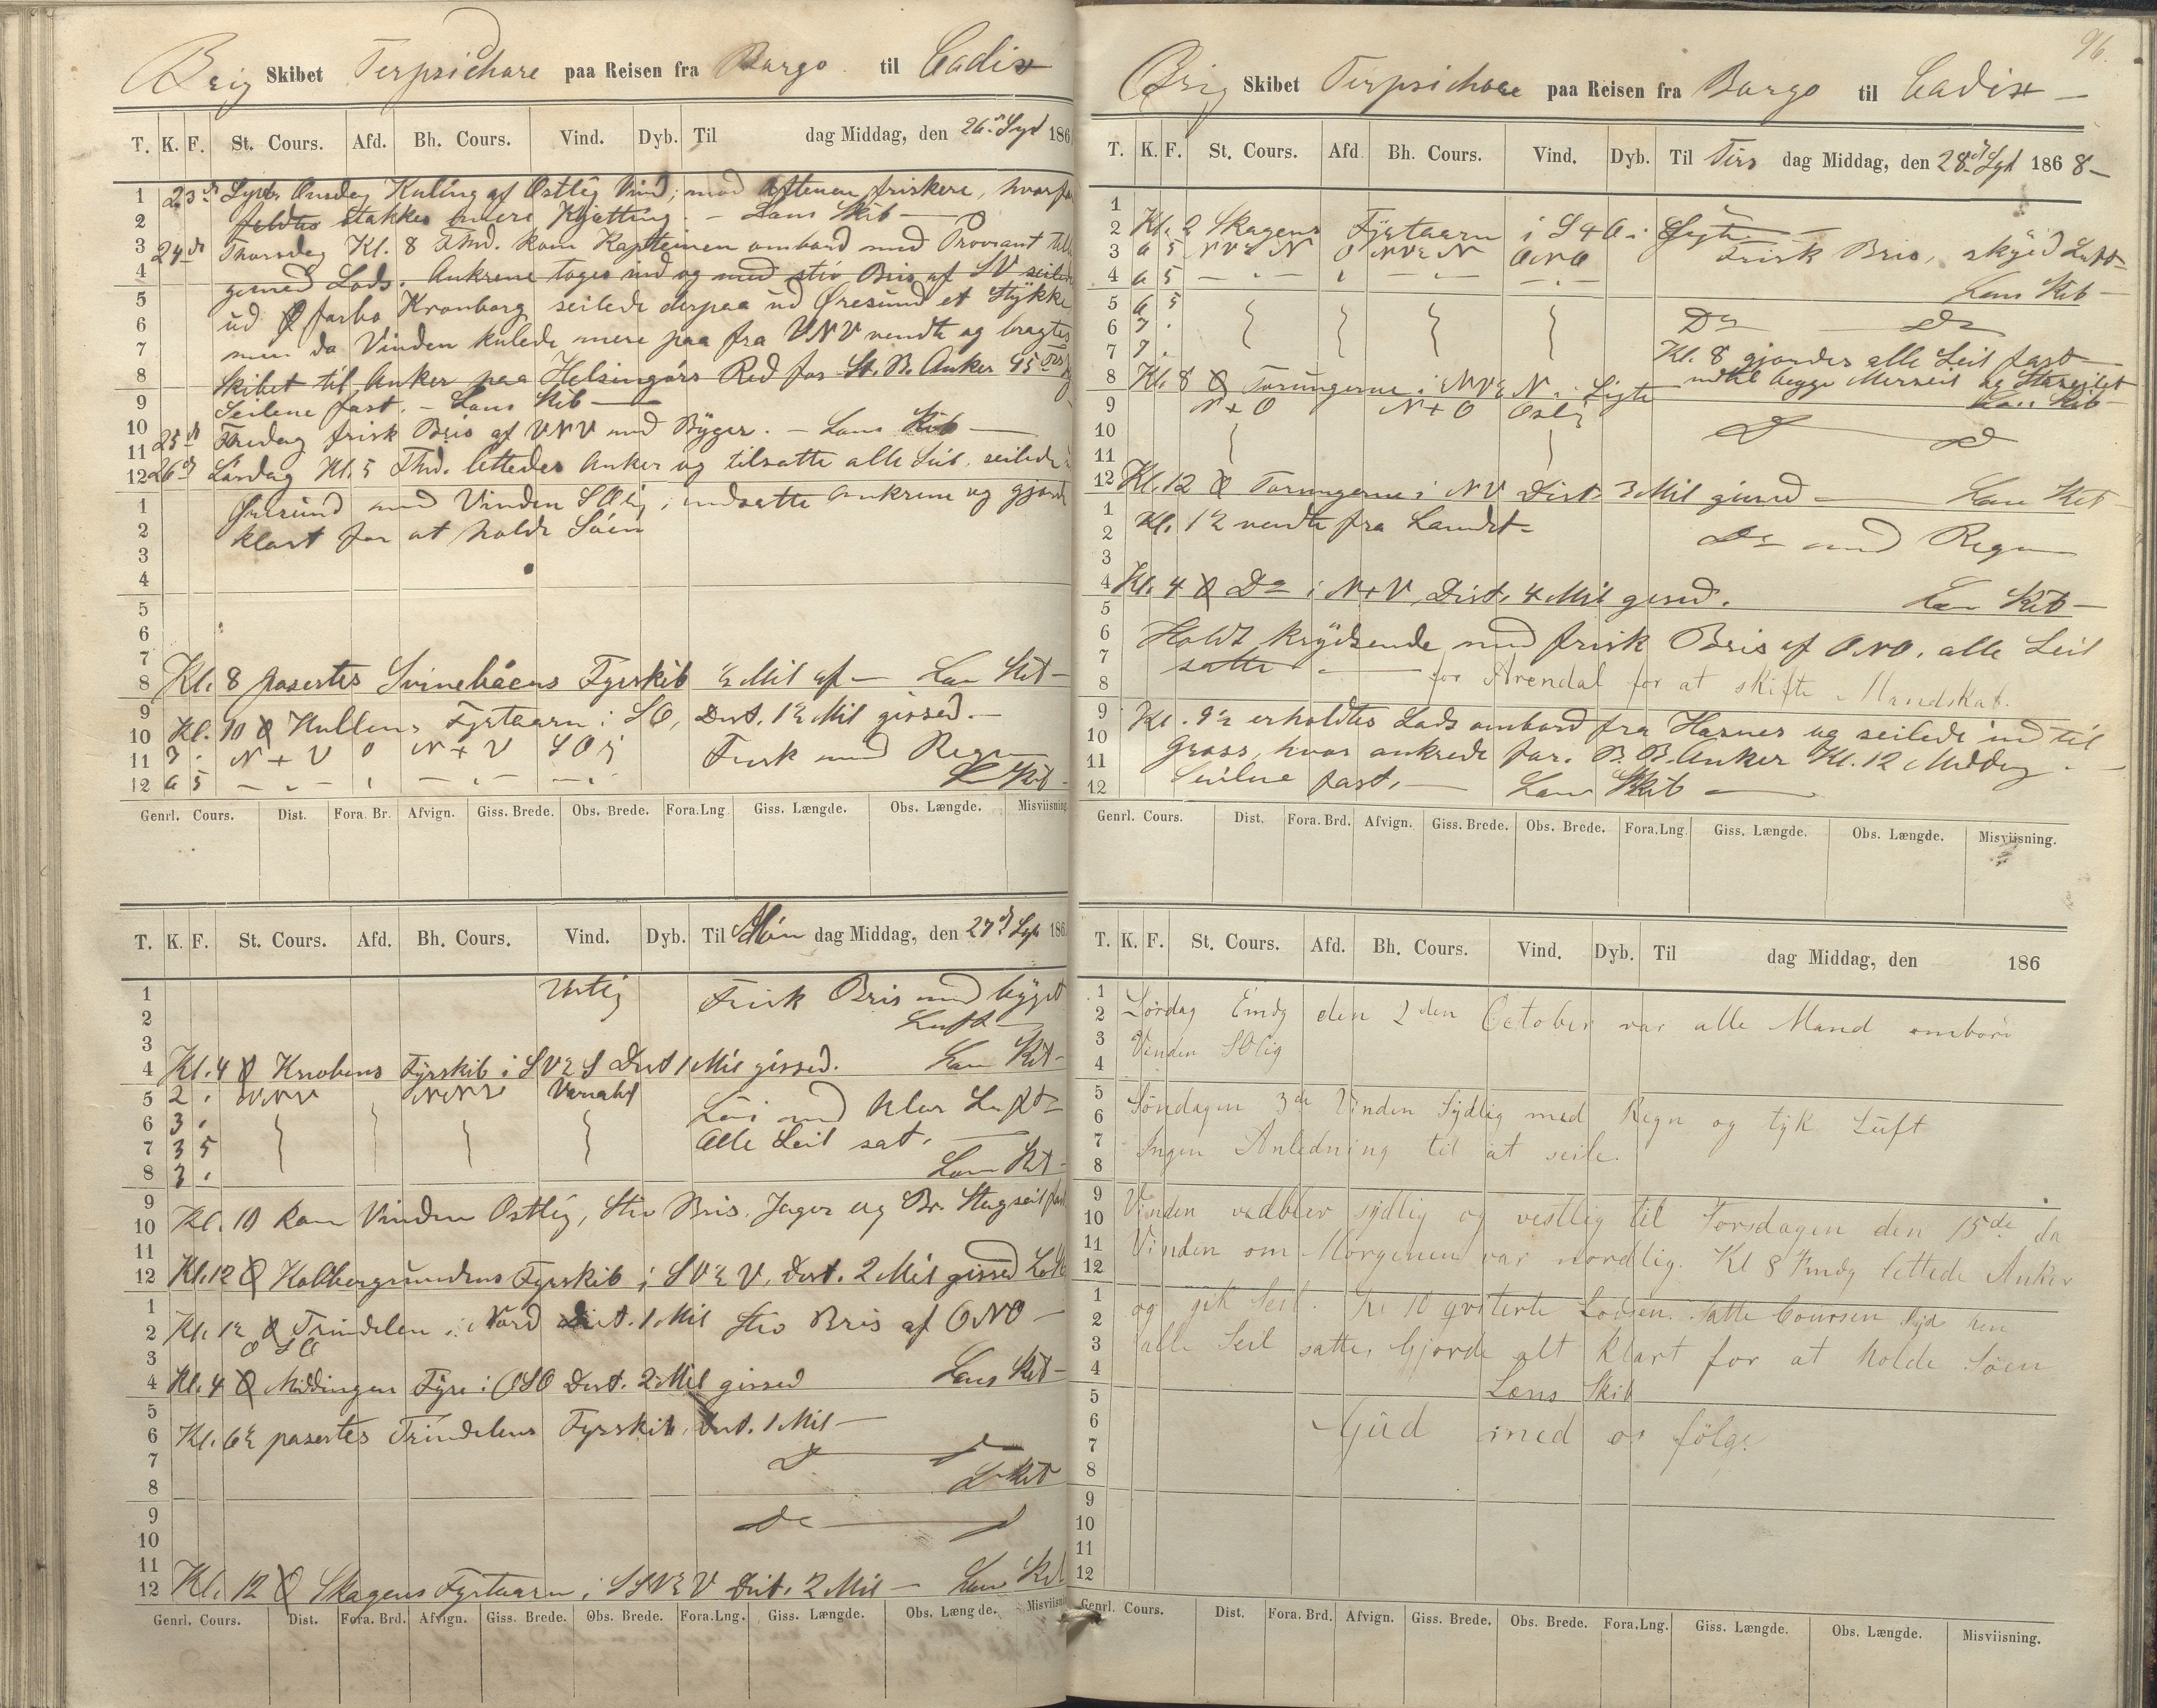 Brig Skibet Terpsichore paa Reisen fra Borgo til Cadix
T. K. F. St. Cours. Afd. Bh. Cours. Vind. Dyb. Til dag Middag, den 26de Sept 186
1 23de Septbr. Onsdag Kuling af Østlig Vind, mod Aftenen friskere, hvorfor
2 stakkes mere Kjætting. – Læns Skib –
3 24de Thorsdag Kl. 8 Fmd. kom Kapteinen ombord med Proviant
4 Lods. Ankrene toges ind og med stiv Bris af SV seilede
5 ud forbi Kronborg, seilede derpaa ud Øresund et Stykke
6 men da Vinden kulede mere paa fra VNV vendte og bragtes
7
8 Skibet til Anker paa Helsingørs Red for St. B. Anker 45
9 Seilene fast. – Læns Skib –
10 25de Fredag frisk Bris af VNV med Byger. – Læns Skib –
11
12 26de Lørdag Kl. 5 Fmd. lettedes Anker og tilsatte alle Seil, seilede
1 Øresund med Vinden SOlig, indsatte Ankrene og gjorde
2 klart for at holde Søen
3
4
5
6
7
8 Kl. 8 passertes Svinebådens Fyrskib ½ Mil af – Læns Skib –
9
10 Kl. 10 Kullens Fyrtaarn i SO, Dist. 1½ Mil gissed. –
11 7 . N + V 0 N + V SOlig Frisk med Regn
12 6 5 – „ – – „ – – „ – Skib –
Genrl. Cours. Dist. Fora. Br. Afvign. Giss. Brede. Obs. Brede. Fora.Lng Giss. Længde. Obs. Længde. Misviisning
T. K. F. St. Cours. Afd. Bh. Cours. Vind. Dyb. Til Mandag Middag, den 27de Sept 186
1 Frisk Bris med byget
2 Luft –
3
4 Kl. 4 Knobens Fyrskib i SV½S Dist 1 Mil gissed. Læns Skib –
5 2 . Variabel
6 3 . Løi med klar Luft
7 3 5 Alle Seil sat. –
8 3 . Læns Skib –
9
10 Kl. 10 kom Vinden Østlig, Stiv Bris. Jager og Br. Stagseil fast
11
12 Kl. 12 Kobbergrundens Fyrskib i SV½V, Dist. 2 Mil gissed
1
2 Kl. 1½ Trindelen i Nord Dist. 1 Mil Stiv Bris af ONO –
3 O S O
4 Kl. 4 Nidingen Fyre i OSO Dist. 2 Mil gissed Læns Skib –
5
6 Kl. 6½ passertes Trindelens Fyrskib, Dist. 1 Mil –
7
8 Skib
9
10
11
12 Kl. 12 Skagens Fyrtaarn i SSV½V Dist. 2 Mil – Læns Skib
Genrl. Cours. Dist. Fora. Brd. Afvign. Giss. Brede. Obs. Brede. Fora.Lng. Giss. Længde. Obs. Længde. Misviisni
96.
Brig Skibet Terpsichore paa Reisen fra Borgo til Cadix –
T. K. F. St. Cours. Afd Bh. Cours. Vind. Dyb. Til Tirsdag Middag, den 28de Sept 1868 –
1
2 Kl. 2 Skagens Fyrtaarn i S + O i Sigte –
3 6 5 NV½N 0 NV½N ONO Frisk Bris, skyed Luft
4 6 5 – „ – – „ – – „ – Læns Skib –
5 6 5
6 7 . Do – Do
7 7 . Kl. 8 gjordes alle Seil fast
8 Kl. 8 Torungerne i NV½N i Sigte undtl begge Merseil og Stagseilet
9 N + O N + O Ostlig Læns Skib –
10
11
12 Kl. 12 Torungerne i NV Dist. 3 Mil gissed – Læns Skib
1
2 Kl. 1½ vendte fra Landet Do med Regn
3
4 Kl. 4 Do i N + V, Dist. 4 Mil gissed. Læns Skib –
5
6 Holdt krydsende med frisk Bris af ONO. alle Seil
7 satte – for Arendal for at skifte Mandskab.
8
9 Kl. 9½ erholdtes Lods ombord fra Havnes og seilede ind til
10
11 Gross, hvor ankrede for. B.B. Anker Kl. 12 Middag. –
12 Seilene fast. – Læns Skib –
Genrl. Cours. Dist. Fora. Brd. Afvign. Giss. Brede. Obs. Brede. Fora.Lng. Giss. Længde. Obs. Længde. Misviisning.
T. K. F. St. Cours. Afd. Bh. Cours. Vind. Dyb. Til dag Middag, den 186
1
2 Lørdag Emdg den 2den October var alle Mand ombord
3
4 Vinden SOlig
5
6 Søndagen 3de Vinden Sydlig med Regn og tyk Luft
7
8 Ingen Anledning til at seile.
9
10 Vinden vedblev sydlig og vestlig til Torsdagen den 15de da
11
12 Vinden om Morgenen var nordlig. Kl 8 Fmdg lettede Anker
1
2 og gik Seil. Kl 10 qviterte Lodsen. satte Coursen Syd hen
3 alle Seil satte, Gjorde alt klart for at holde Søen
4
5 Læns Skib
6 Gud med os følge
7
8
9
10
11
12
Genrl. Cours. Dist. Fora. Brd. Afvign. Giss. Brede. Obs. Brede. Fora.Lng. Giss. Længde. Obs. Længde. Misviisning.